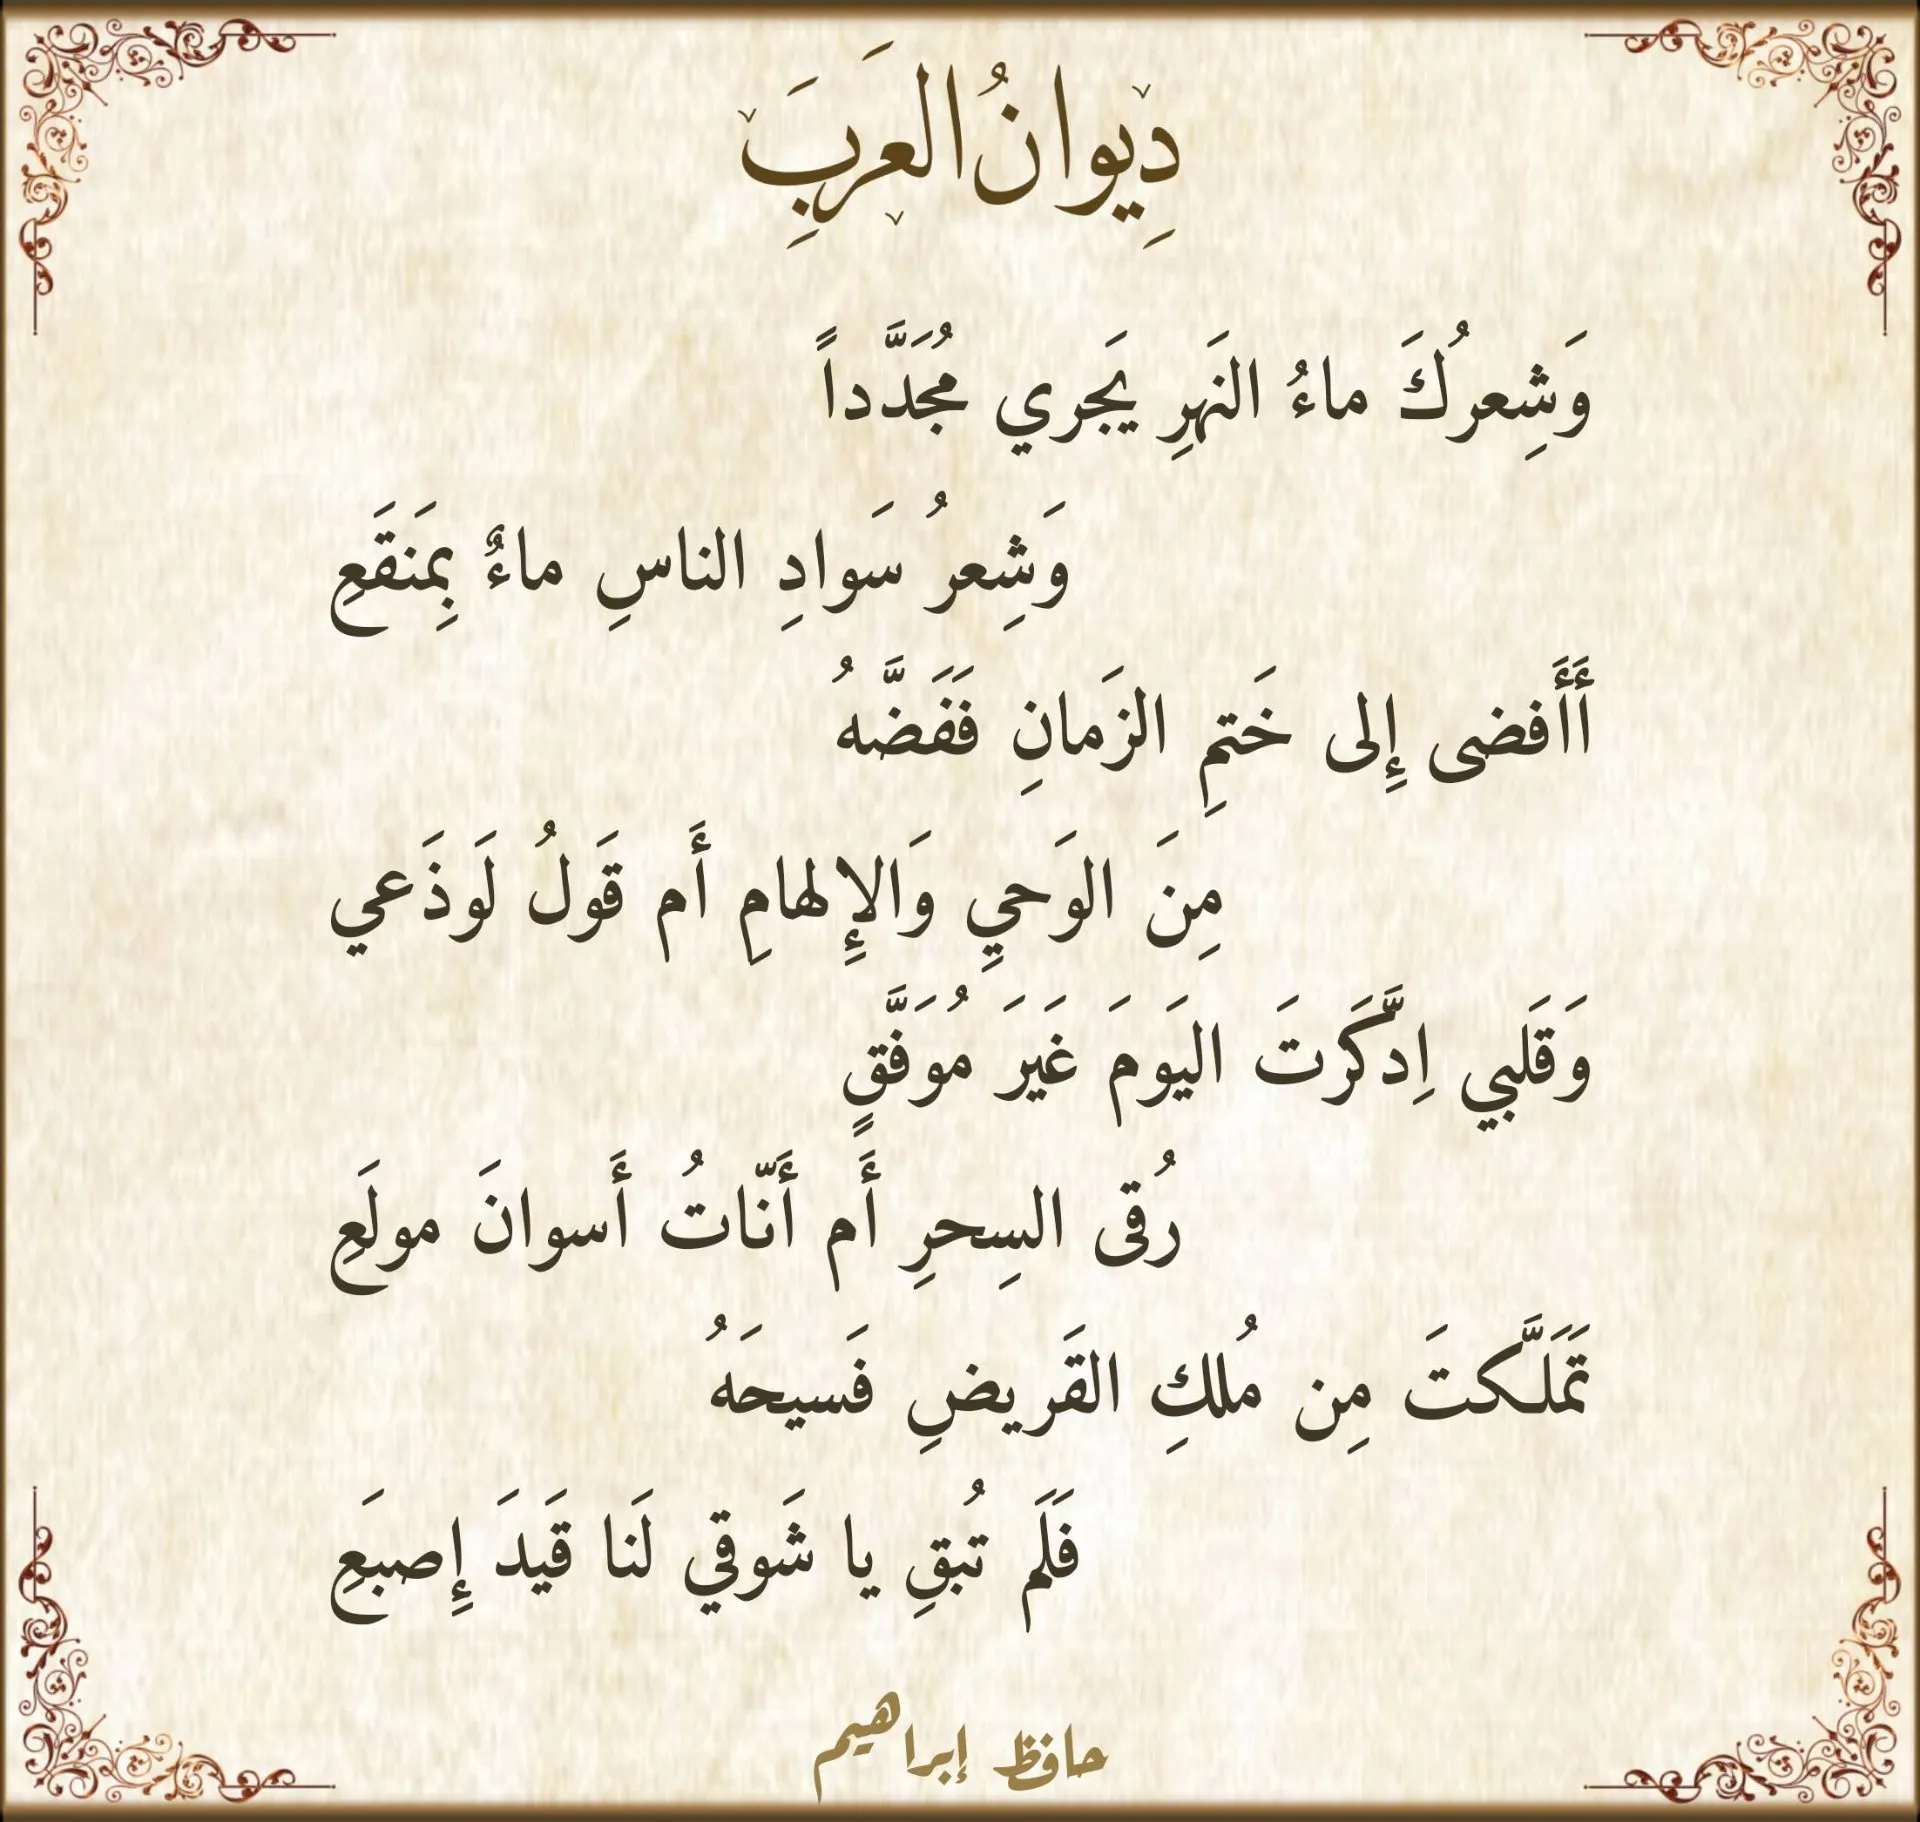 دِيوانُ العَربَِ
وَشِعرُكَ ماءُ النَهرِ يَجري مُجَدَّداً
وَشِعرُ سَوادِ الناسِ ماءٌ بِمَنقَعِ
أَأَفضى إِلى خَتمِ الزَمانِ فَفَضَّهُ
مِنَ الوَحيِ وَالإِلهامِ أَم قَولُ لَوذَعي
وَقَلبي اِدَّكَرتَ اليَومَ غَيرَ مُوَفَّقٍ
رُقى السِحرِ أَم أَنّاتُ أَسوانَ مولَعِ
تَمَلَّكتَ مِن مُلكِ القَريضِ فَسيحَهُ
فَلَم تُبقِ يا شَوقي لَنا قَيدَ إِصبَعِ
حافظ إبراهيم